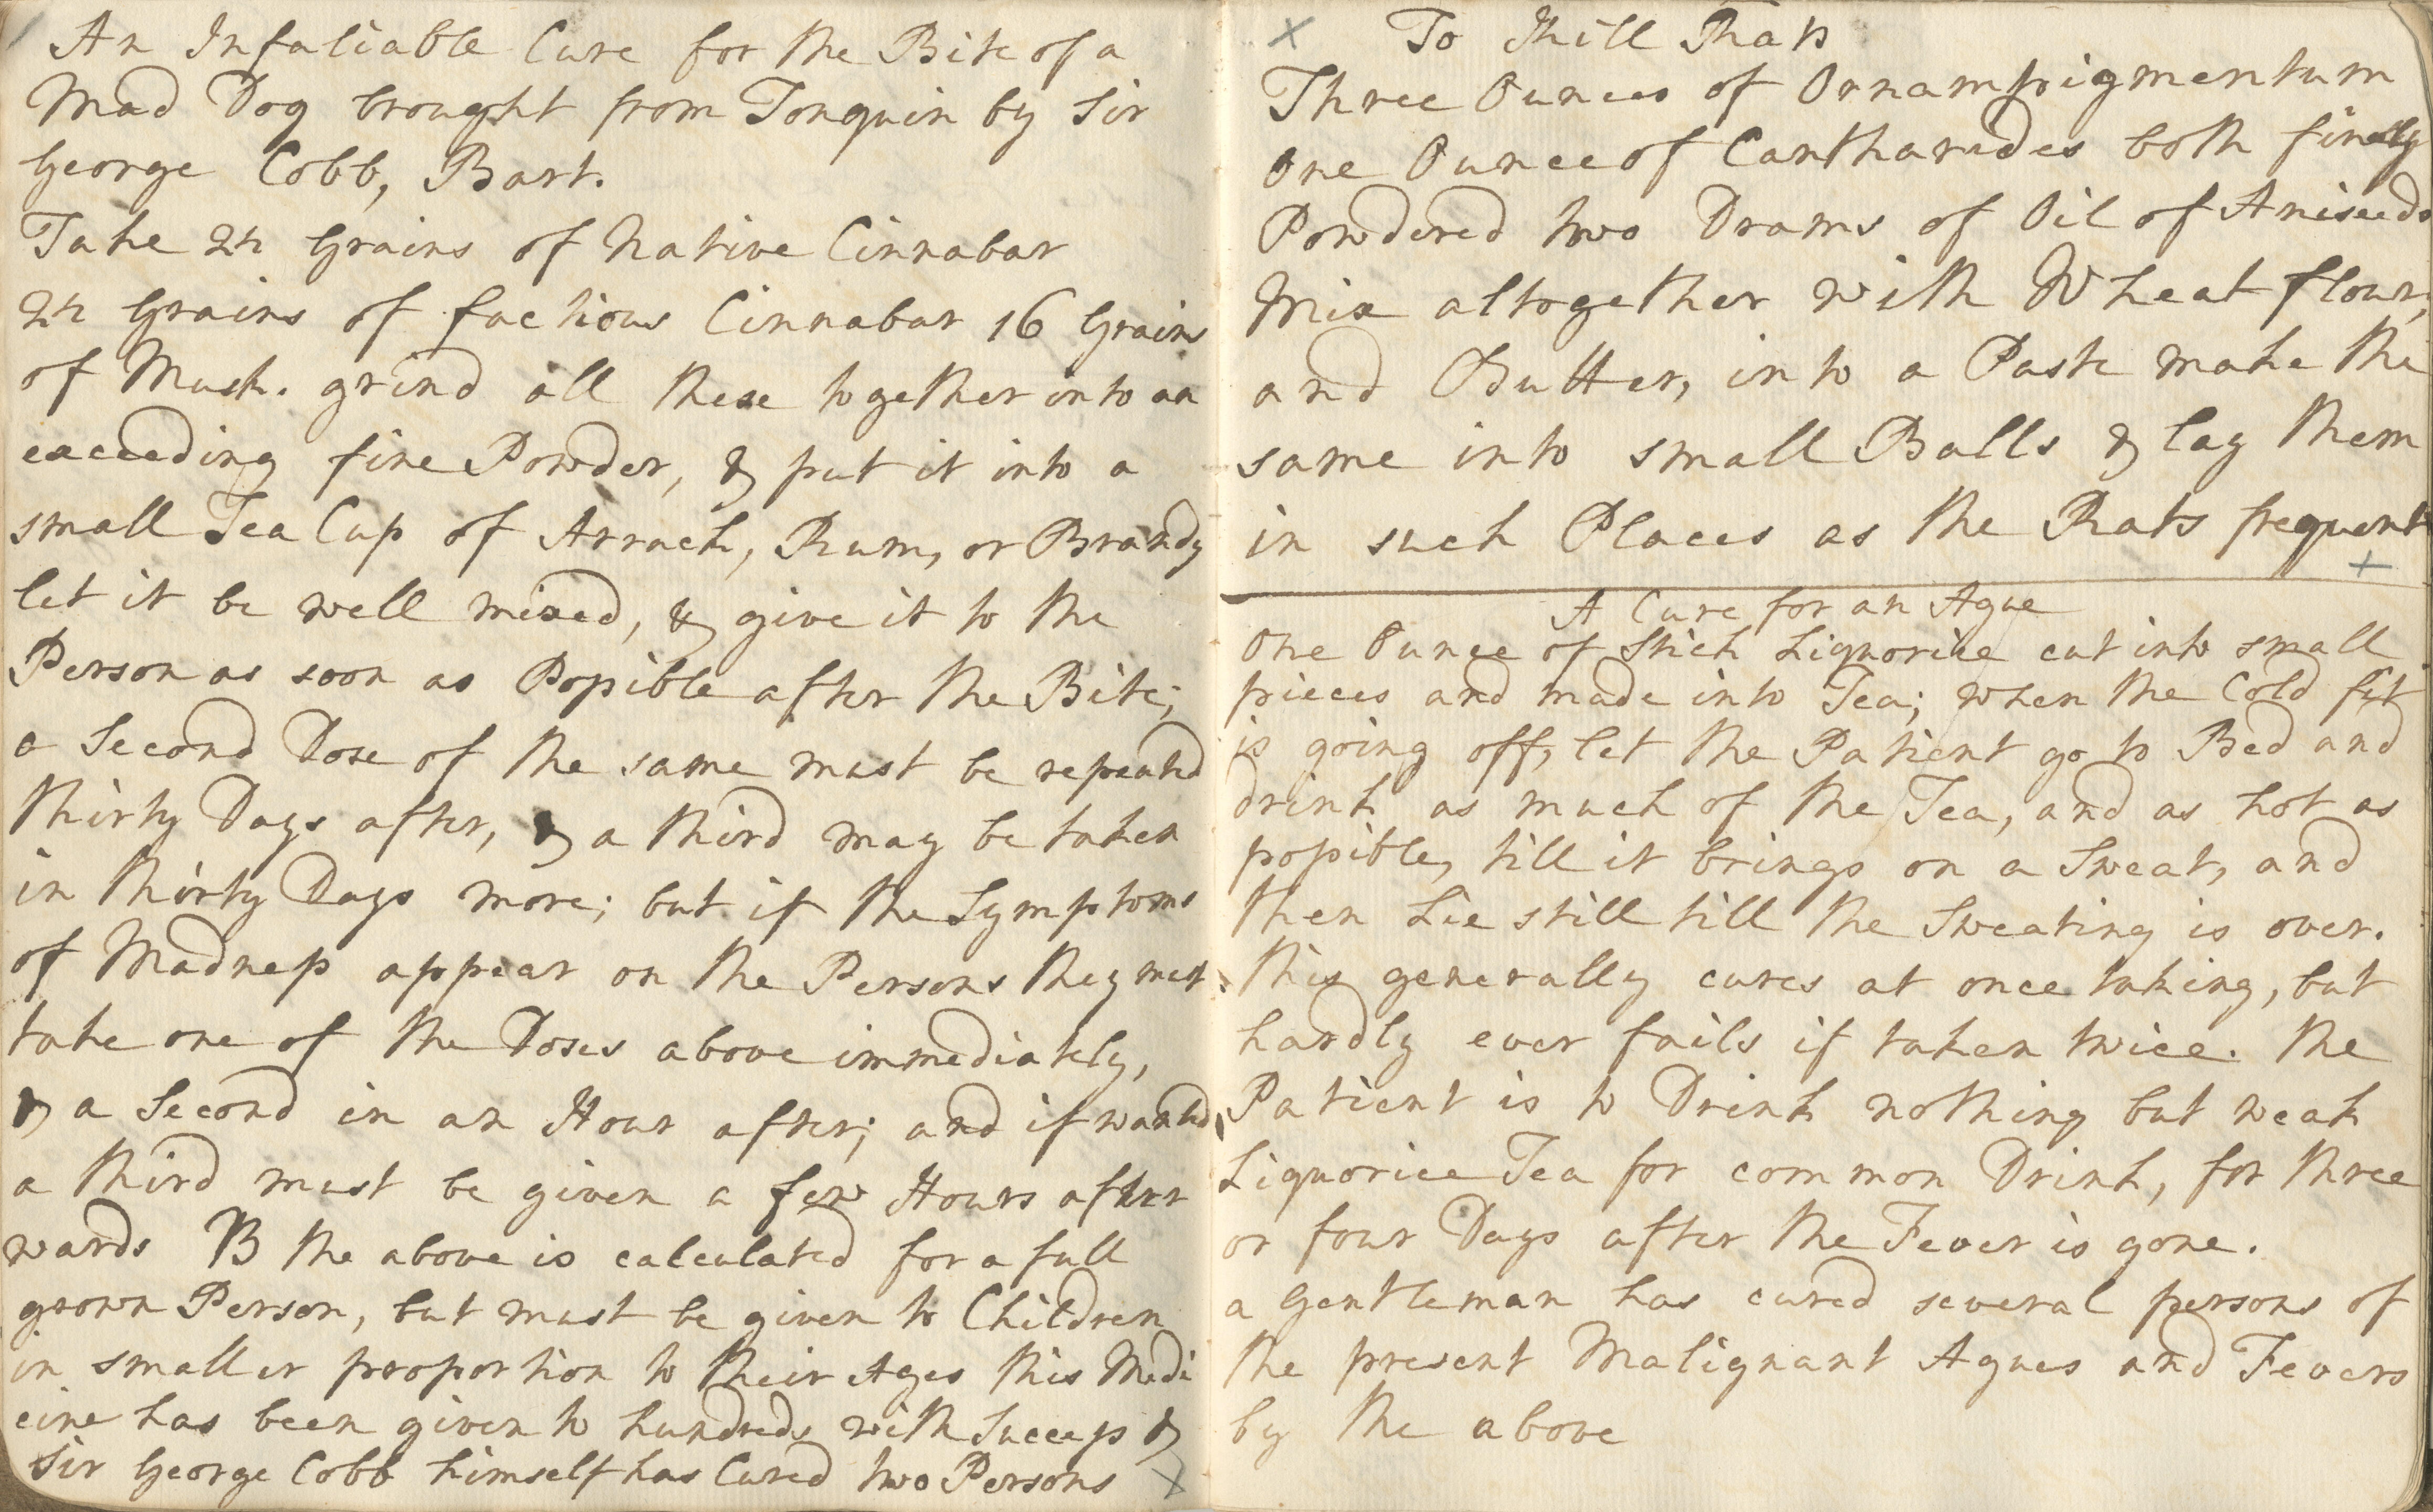 An Infaliable Cure for the Bite of a
Mad Dog brought from Tonquin by Sir
George Cobb, Bart.
Take 24 Grains of Native Cinnabar
24 Grains of factious Cinnabar 16 Grains
of Musk. grind all these together into an
exceeding fine Powder, & put it into a
small Tea Cup of Arrack, Rum, or Brandy
let it be well mixed, & give it to the
Person as soon as Possible after the Bite;
a Second Dose of the same must be repeated
thirty Days after, & a third may be taken
in thirty Days more; but if the Symptoms
of Madness appear on the Persons they must
take one of the Doses above immediately,
& a Second in an Hour after; and if wanted,
a third must be given a few Hours after
wards NB the above is calculated for a full
grown Person, but must be given to Children
in smaller proportion to their Ages this Medi
cine has been given to hundreds with Success &
Sir George Cobb himself has Cured two Persons X
X To Kill Rats
Three Ounces of Ornampigmentum
One Ounce of Cantharides both finely
Powdered two Drams of Oil of Aniseeds
Mix altogether with Wheat flour,
and Butter, into a Paste make the
same into small Balls & lay them
in such Places as the Rats frequent
X
A Cure for an Ague
One Ounce of Stick Liquorice cut into small
pieces and made into Tea; when the Cold fit
is going off, let the Patient go to Bed and
drink as much of the Tea, and as hot as
possible, till it brings on a Sweat, and
then Lie still till the Sweating is over.
this generally cures at once taking, but
hardly ever fails if taken twice. the
Patient is to Drink nothing but weak
Liquorice Tea for common Drink, for three
or four Days after the Fever is gone.
a Gentleman has cured several persons of
the present Malignant Agues and Fevers
by the above